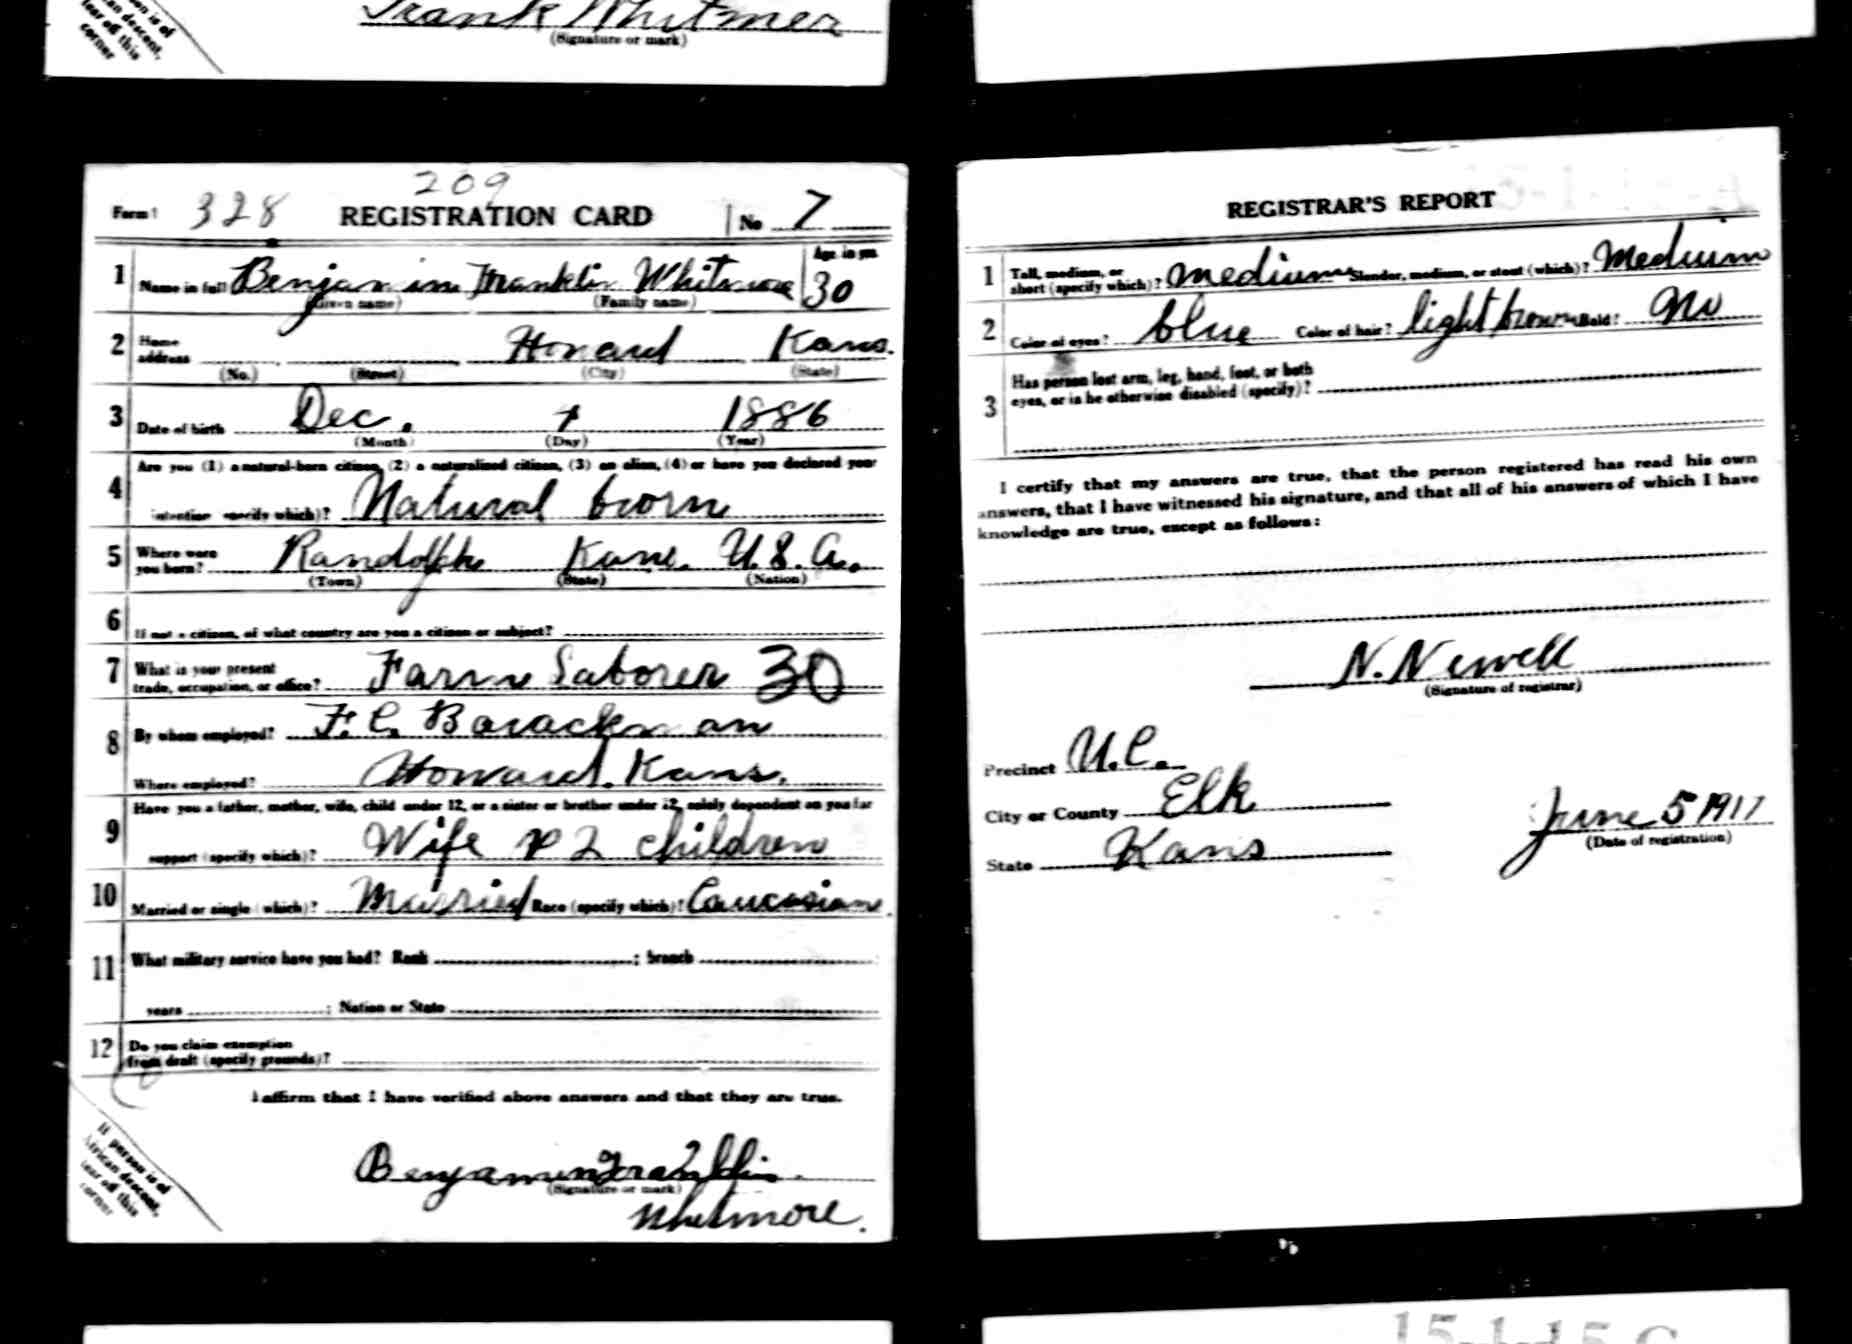 Frank Whitmer
(Signature or mark)
209
Form 1 328 REGISTRATION CARD No 7
1 Name in full Benjamin Franklin Whitmore Age, in yrs. 30
(Given name) (Family name)
2 Home address Howard Kans.
(No.) (Street) (City) (State)
3 Date of birth Dec. 7 1886
(Month) (Day) (Year)
4 Are you (1) a natural-born citizen, (2) a naturalized citizen, (3) an alien, (4) or have you declared your
intention (specify which)? Natural born
5 Where were you born? Randolph Kans. U.S.A.
(Town) (State) (Nation)
6 If not a citizen, of what country are you a citizen or subject?
7 What is your present
trade, occupation, or office? Farm Laborer 30
8 By whom employed? F. C. Barackman
Where employed? Howard. Kans.
9 Have you a father, mother, wife, child under 12, or a sister or brother under 12, solely dependent on you for
support (specify which)? Wife & 2 children
10 Married or single (which)? Married Race (specify which)? Caucasian
11 What military service have you had? Rank ; branch
years ; Nation or State
12 Do you claim exemption
from draft (specify grounds)?
I affirm that I have verified above answers and that they are true.
Benjamin Franklin
(Signature or mark)
Whitmore.
If person is of
African descent,
tear off this
corner
REGISTRAR'S REPORT
1 Tall, medium, or
short (specify which)? medium Slender, medium, or stout (which)? Medium
2 Color of eyes? blue Color of hair? light brown Bald? No
3 Has person lost arm, leg, hand, foot, or both
eyes, or is he otherwise disabled (specify)?
I certify that my answers are true, that the person registered has read his own
answers, that I have witnessed his signature, and that all of his answers of which I have
knowledge are true, except as follows:
N. Newell
(Signature of registrar)
Precinct U.C.
City or County Elk
State Kans
June 5 1917
(Date of registration)